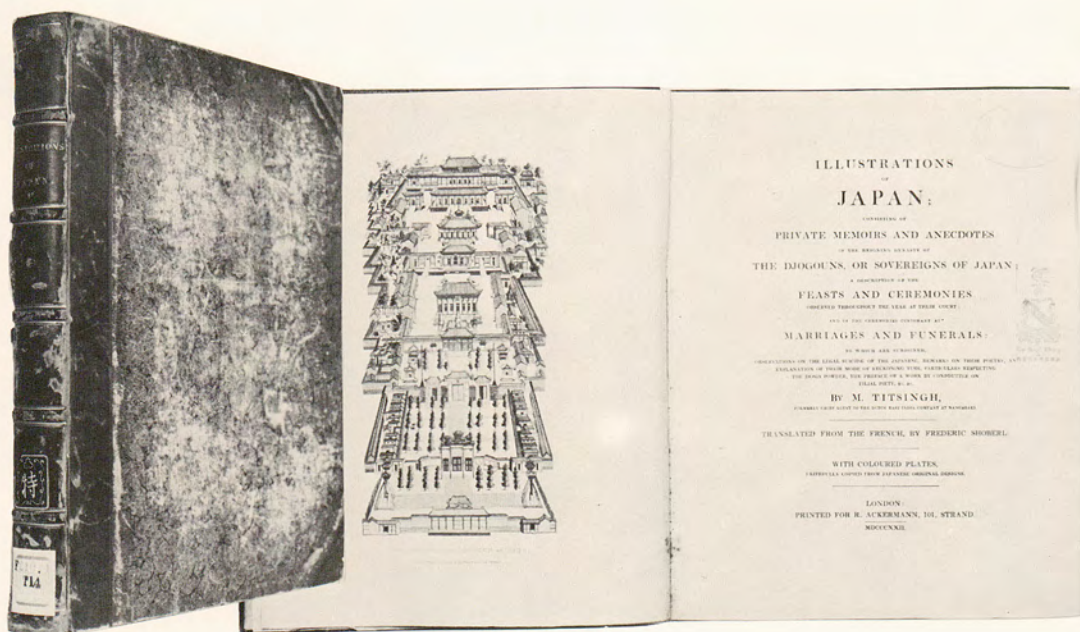 特
ILLUSTRATIONS
OF
JAPAN;
CONSISTING OF
PRIVATE MEMOIRS AND ANECDOTES
OF THE REIGNING DYNASTY OF
THE DJOGOUNS, OR SOVEREIGNS OF JAPAN;
A DESCRIPTION OF THE
FEASTS AND CEREMONIES
OBSERVED THROUGHOUT THE YEAR AT THEIR COURT;
AND OF THE CEREMONIES CUSTOMARY AT
MARRIAGES AND FUNERALS:
TO WHICH ARE SUBJOINED,
OBSERVATIONS ON THE LEGAL SUICIDE OF THE JAPANESE, REMARKS ON THEIR POETRY, AN
EXPLANATION OF THEIR MODE OF RECKONING TIME, PARTICULARS RESPECTING
THE DOSIA POWDER, THE PREFACE OF A WORK BY CONFOUTZEE ON
FILIAL PIETY, &c. &c.
BY M. TITSINGH,
FORMERLY CHIEF AGENT TO THE DUTCH EAST INDIA COMPANY AT NANGASAKI.
TRANSLATED FROM THE FRENCH, BY FREDERIC SHOBERL.
WITH COLOURED PLATES,
FAITHFULLY COPIED FROM JAPANESE ORIGINAL DESIGNS.
LONDON:
PRINTED FOR R. ACKERMANN, 101, STRAND.
MDCCCXXII.